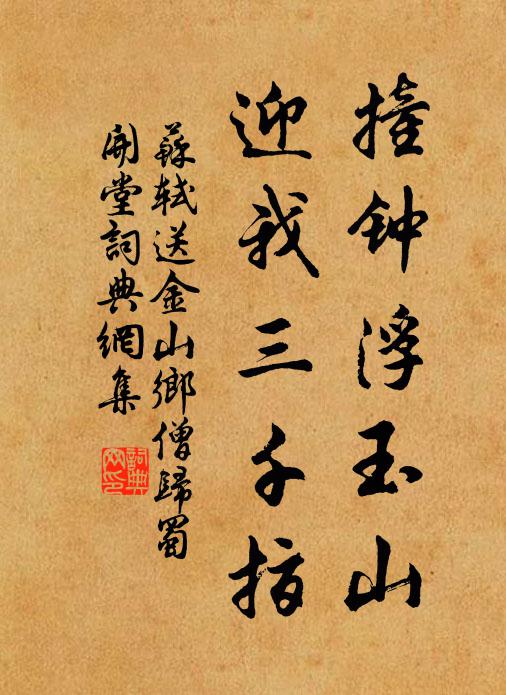 撞钟浮玉山
迎我三千指
蘇軾送金山鄉僧歸蜀
開堂詞典網集
詞典
网印